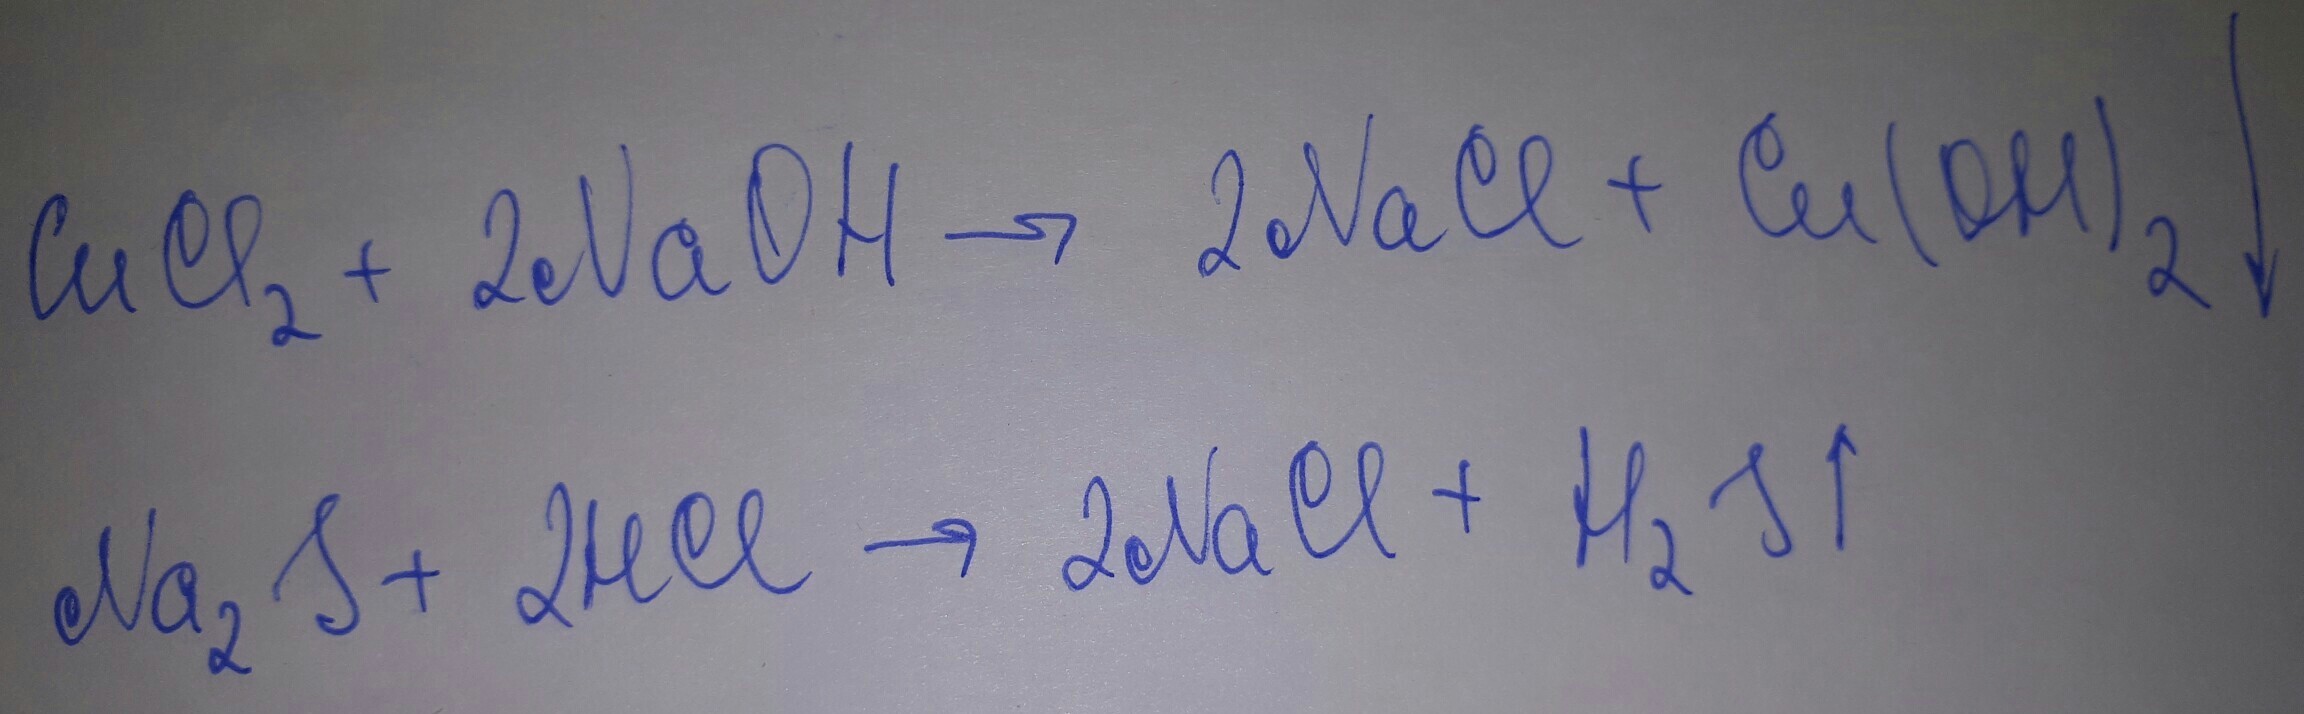 CuCl₂ + 2NaOH → 2NaCl + Cu(OH)₂↓
Na₂S + 2HCl → 2NaCl + H₂S↑